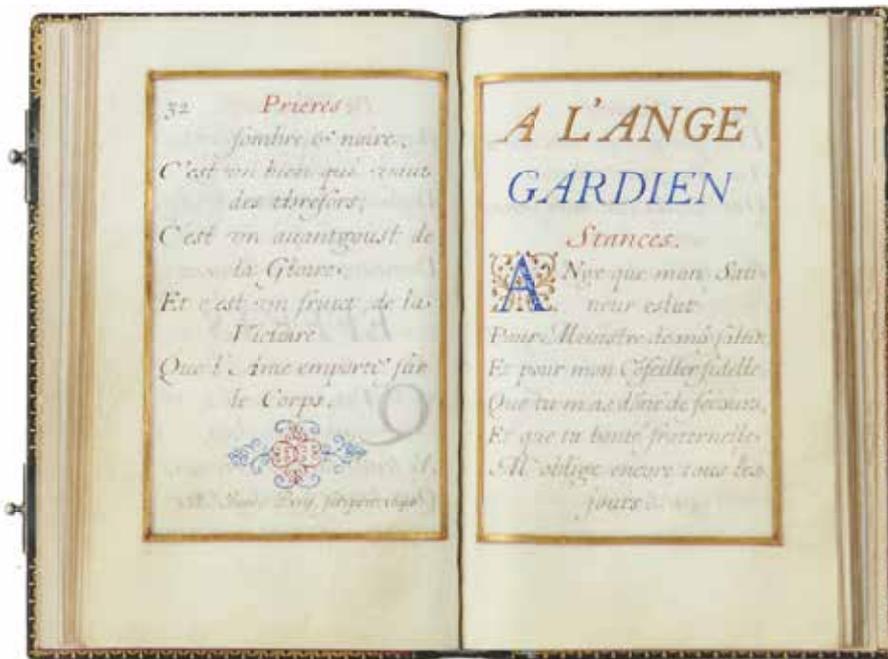 32 Prieres
sombre & noire,
C'est vn bien qui vaut
des thresors;
C'est vn auantgoust de
la Gloire;
Et c'est vn fruict de la
Victoire
Que l'Ame emporte sur
le Corps.
A L'ANGE
GARDIEN
Stances.
ANge que mon Sau
ueur eslut
Pour Ministre de mō salut,
Et pour mon Cōseiller fidelle
Que tu m'as dōné de secours,
Et que ta bonté fraternelle
M'oblige encore tous les
jours